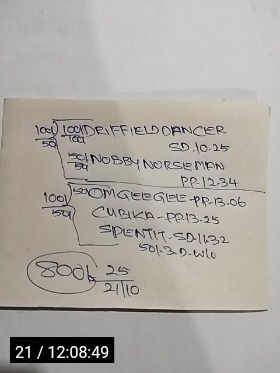 100/ 100/ DRIFFIELD DANCER
50/ 100/
SD.10.25
50/ NOBBY NORSEMAN
50/
PP.12.34
100/ 50/ OMGEEGEE-PP.13.06
50/
CUBIKA-PP.13.25
SPLENTIT-SD.11.32
50/.3.D.W/W
800/- 25
21/10
21 / 12:08:49